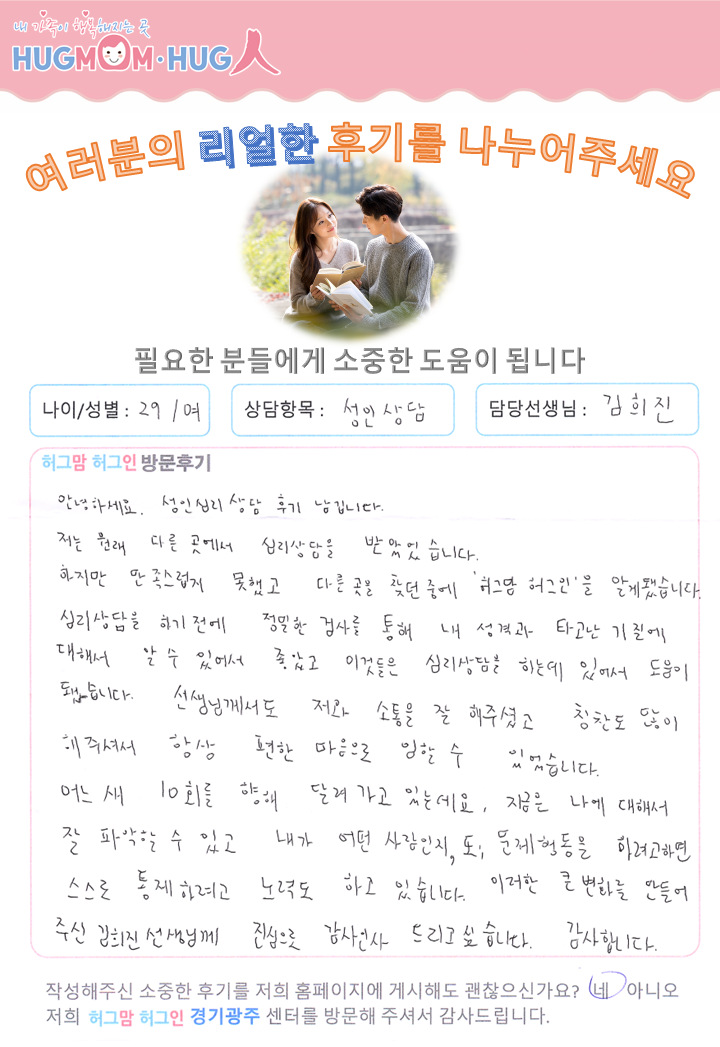 내 가족이 행복해지는 곳
HUGMOM·HUG人
여러분의 리얼한 후기를 나누어주세요
필요한 분들에게 소중한 도움이 됩니다
나이/성별 : 29 / 여
상담항목 : 성인상담
담당선생님 : 김희진
허그맘 허그인 방문후기
안녕하세요. 성인심리상담 후기 남깁니다.
저는 원래 다른 곳에서 심리상담을 받았었습니다.
하지만 만족스럽게 못했고 다른곳을 찾던중에 '허그맘 허그인'을 알게됐습니다.
심리상담을 하기전에 정밀한 검사를 통해 내 성격과 타고난 기질에
대해서 알 수 있어서 좋았고 이것들은 심리상담을 하는데 있어서 도움이
됐습니다. 선생님께서도 저와 소통을 잘 해주셨고 칭찬도 많이
해주셔서 항상 편한 마음으로 임할 수 있었습니다.
어느 새 10회를 향해 달려가고 있는데요, 지금은 나에 대해서
잘 파악할 수 있고 내가 어떤 사람인지, 또, 문제행동을 하려고하면
스스로 통제하려고 노력도 하고 있습니다. 이러한 큰변화를 만들어
주신 김희진선생님께 진심으로 감사인사 드리고싶습니다. 감사합니다.
작성해주신 소중한 후기를 저희 홈페이지에 게시해도 괜찮으신가요? 네 아니오
저희 허그맘 허그인 경기광주 센터를 방문해 주셔서 감사드립니다.